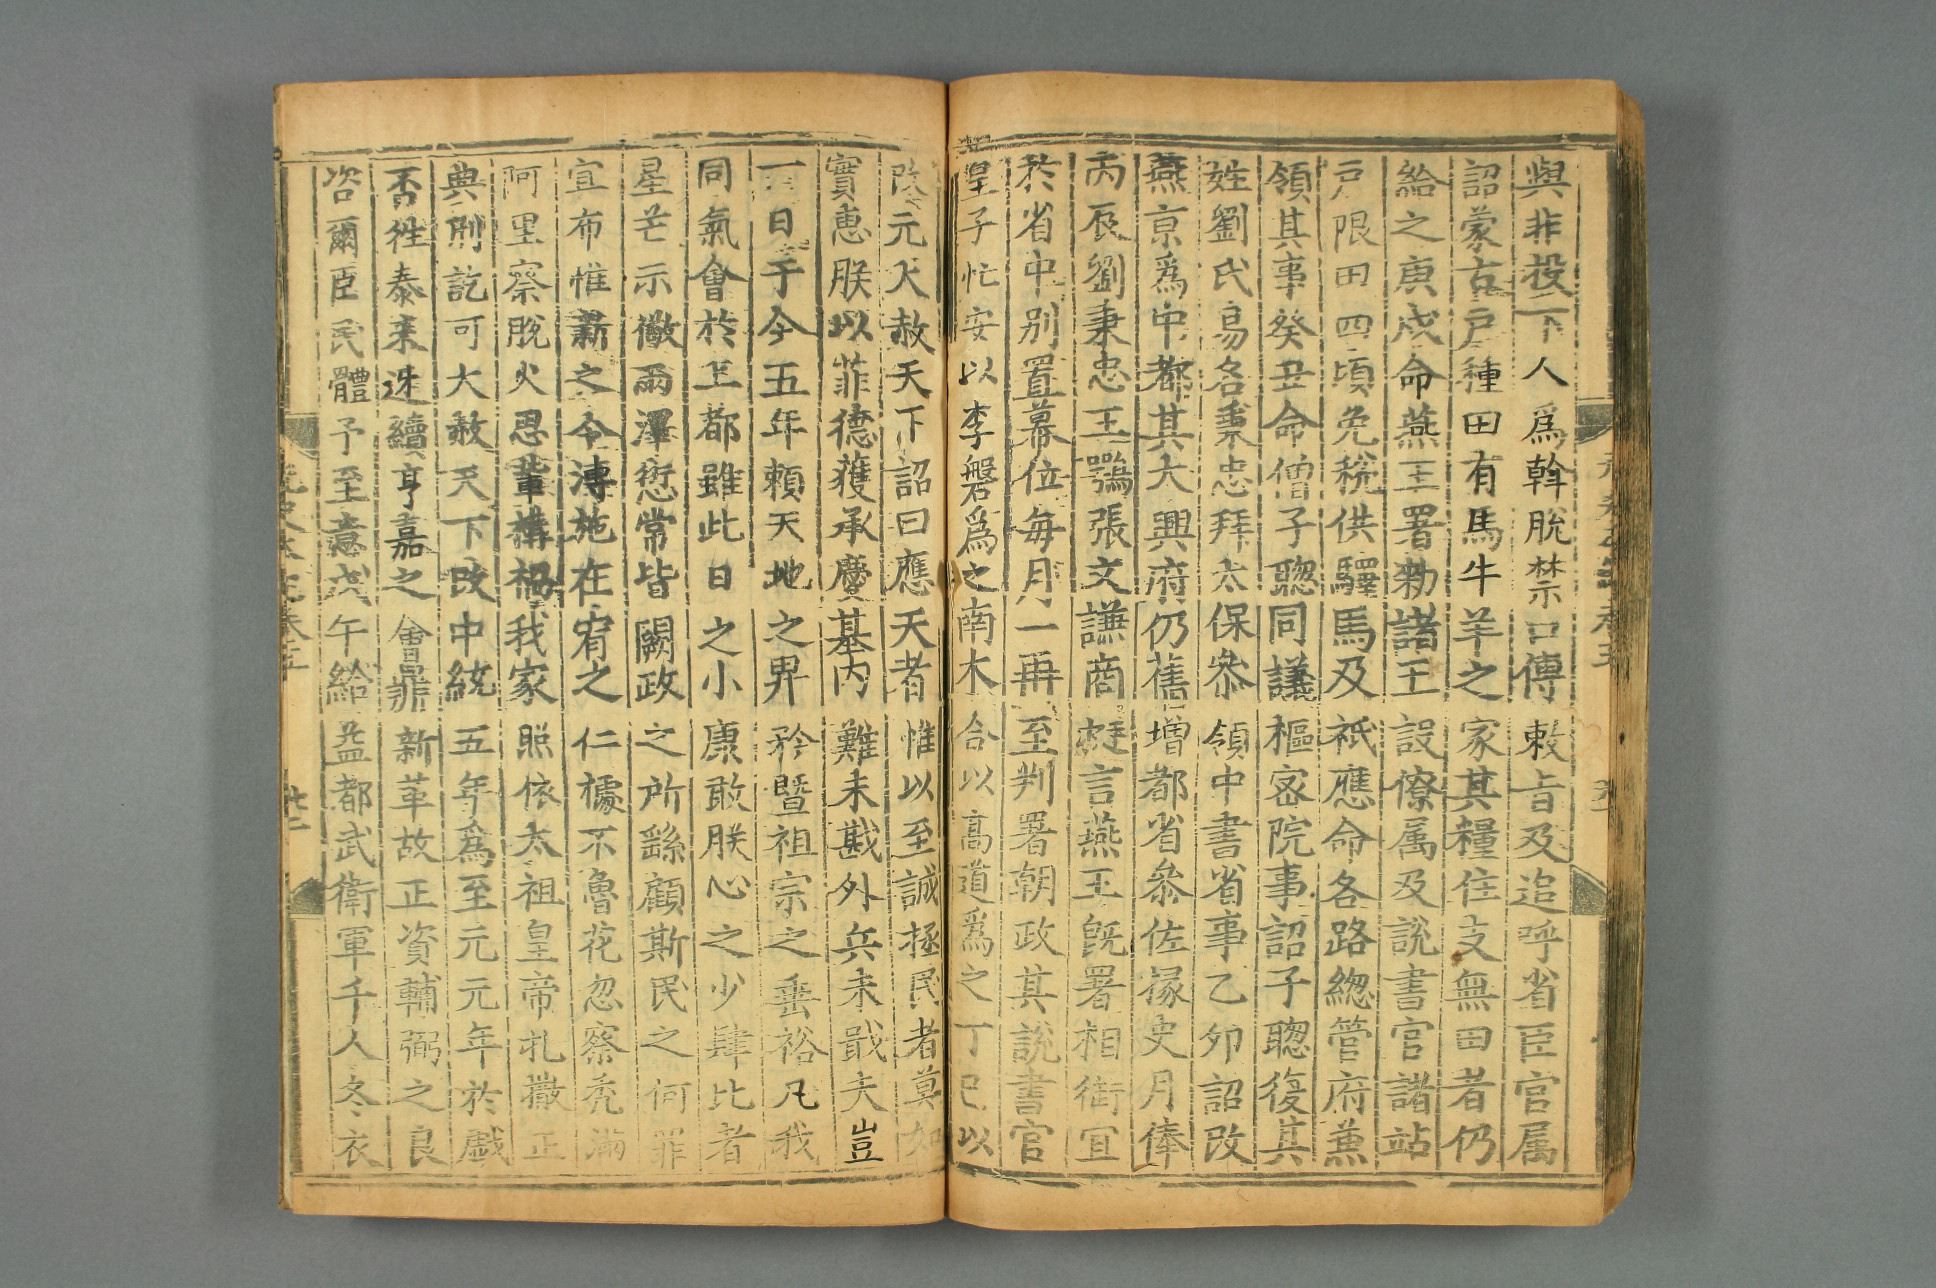 與非投下人爲斡脫禁口傳敕旨及追呼省臣官属
詔蒙古戶種田有馬牛羊之家其糧住支無田者仍
給之庚戍命燕王署勑諸王設僚属及說書官諸站
戶限田四頃免稅供驛馬及祗應命各路緫管府兼
領其事癸丑命僧子聰同議樞密院事詔子聰復其
姓劉氏易名秉忠拜太保叅領中書省事乙夘詔改
燕京爲中都其大興府仍舊增都省叅佐掾史月俸
丙辰劉秉忠王鶚張文謙商挺言燕王旣署相銜宜
於省中别置幕位每月一再至判署朝政其說書官
皇子忙安以李磐爲之南木合以高道爲之丁巳以
改元大赦天下詔曰應天者惟以至誠拯民者莫如
實惠朕以菲德獲承慶基内難未戡外兵未戢夫豈
一日于今五年賴天地之畀矜曁祖宗之垂裕凡我
同氣會於上都雖此日之小康敢朕心之少肆比者
星芒示儆雨澤愆常皆闕政之所繇顧斯民之何罪
宜布惟新之令溥施在宥之仁據不魯花忽察禿滿
阿里察脫火思輩構禍我家照依太祖皇帝扎撒正
典刑訖可大赦天下改中統五年爲至元元年於戲
否徃泰来迓續亨嘉之會鼎新革故正資輔弼之良
咨爾臣民體予至意戊午給益都武衛軍千人冬衣
元史本紀卷五
廿二